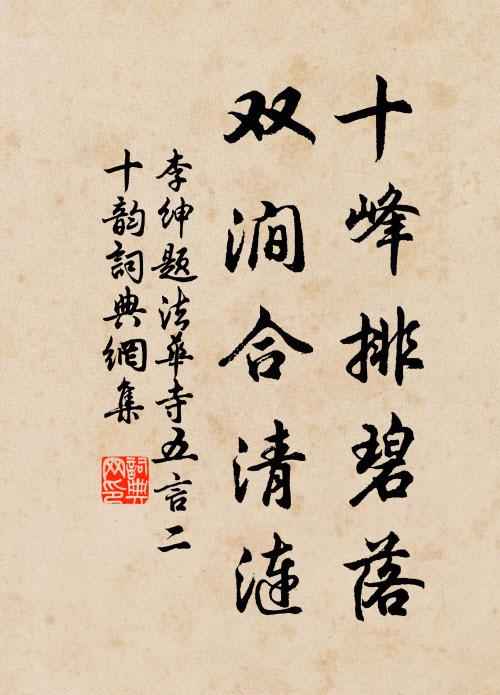 十峰排碧落
双涧合清涟
李绅题法华寺五言二
十韵詞典網集
詞典
网印